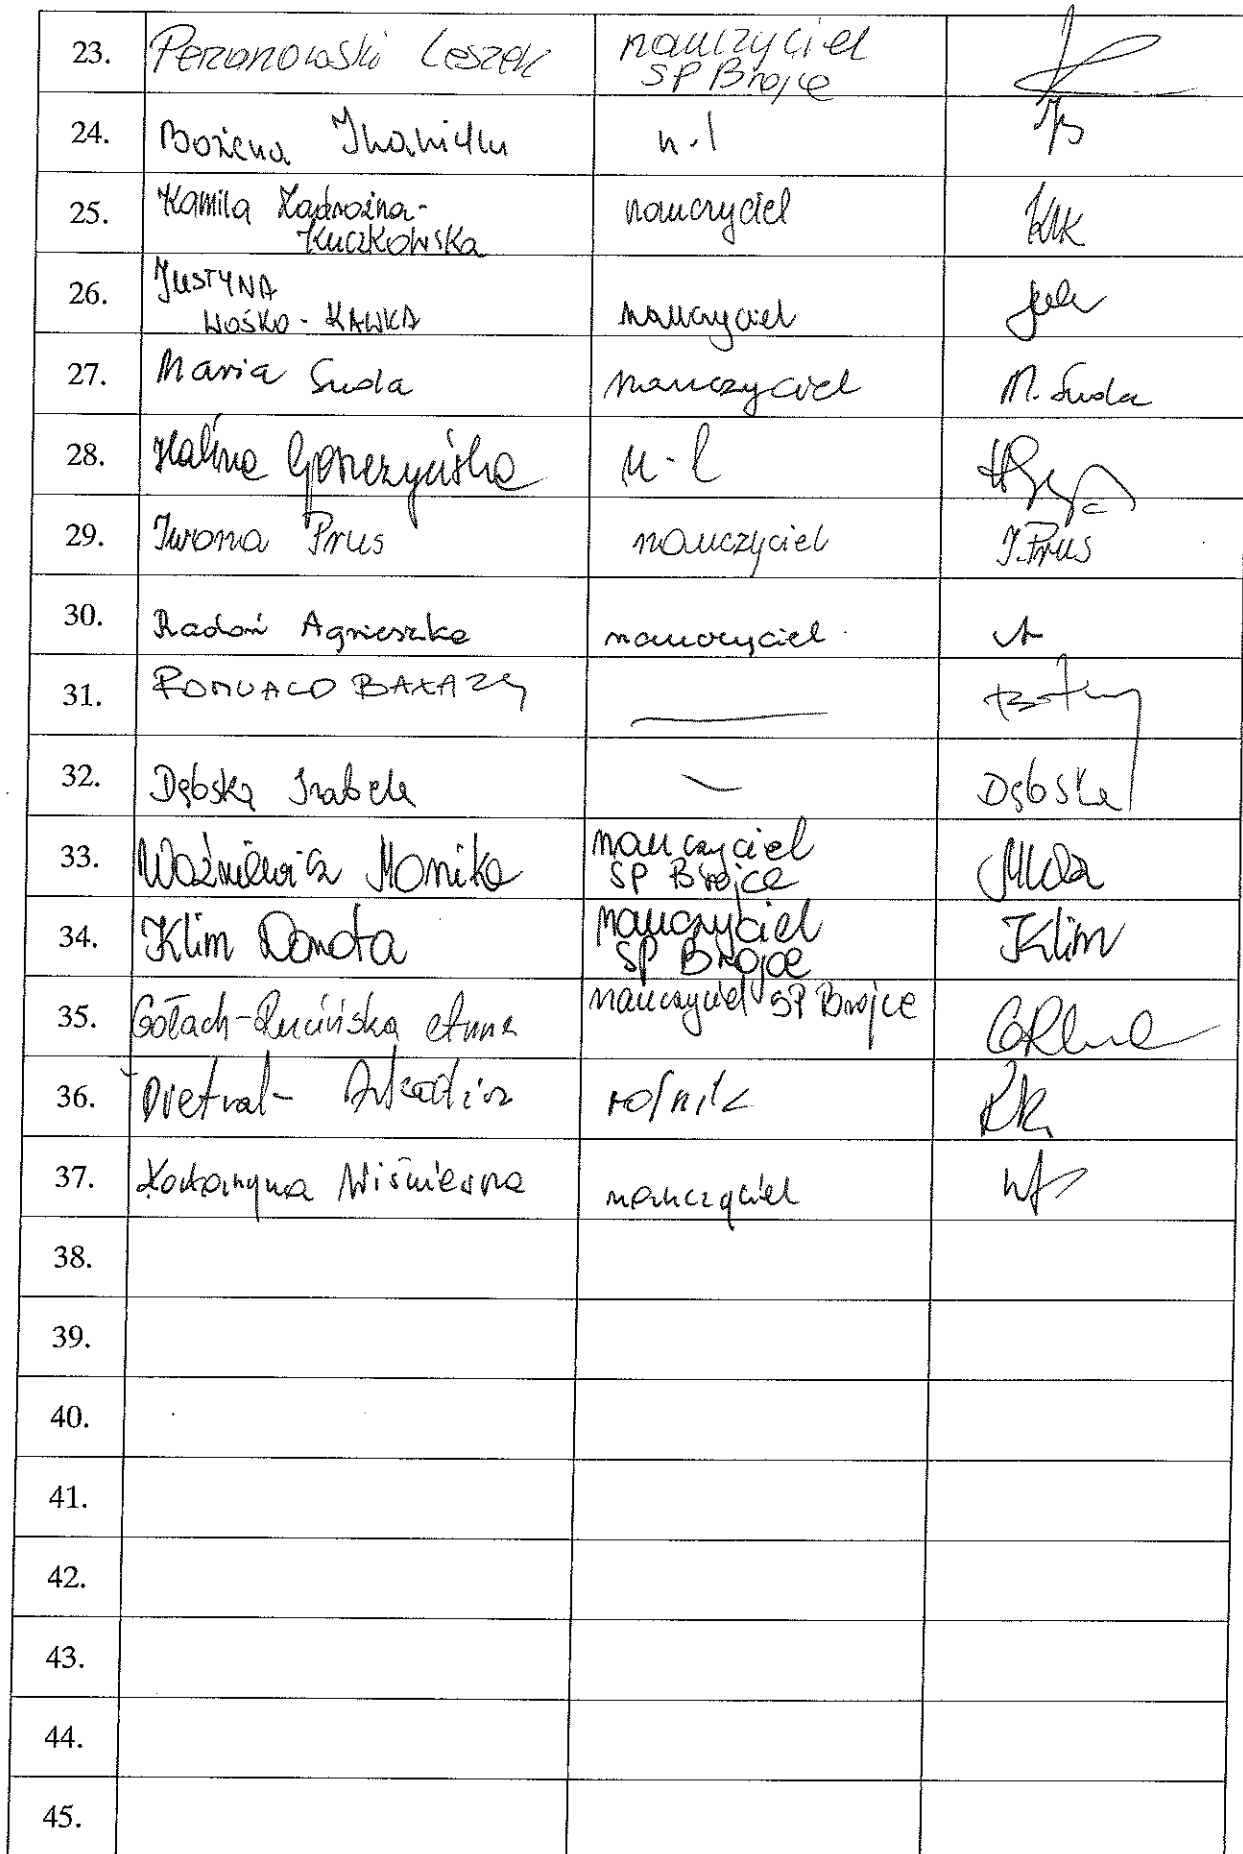 23. Peranowski Leszek nauczyciel
SP Brojce
24. Bożena n.l
25. Kamila Zadrożna- nauczyciel KZK
Kuczkowska
26. JUSTYNA
WOŚKO-KAWKA nauczyciel
27. Maria Suda nauczyciel M. Suda
28. Halina n-l
29. Iwona Prus nauczyciel I. Prus
30. Radoń Agnieszka nauczyciel
31. ROMUALD BAŁAZY
32. Dębska Izabela Dębska
33. Woźniewicz Monika nauczyciel
SP Brojce
34. Klim Dorota nauczyciel Klim
SP Brojce
35. Gołach-Rucińska Anna nauczyciel SP Brojce
36. Arkadiusz rolnik
37. Katarzyna nauczyciel
38.
39.
40.
41.
42.
43.
44.
45.